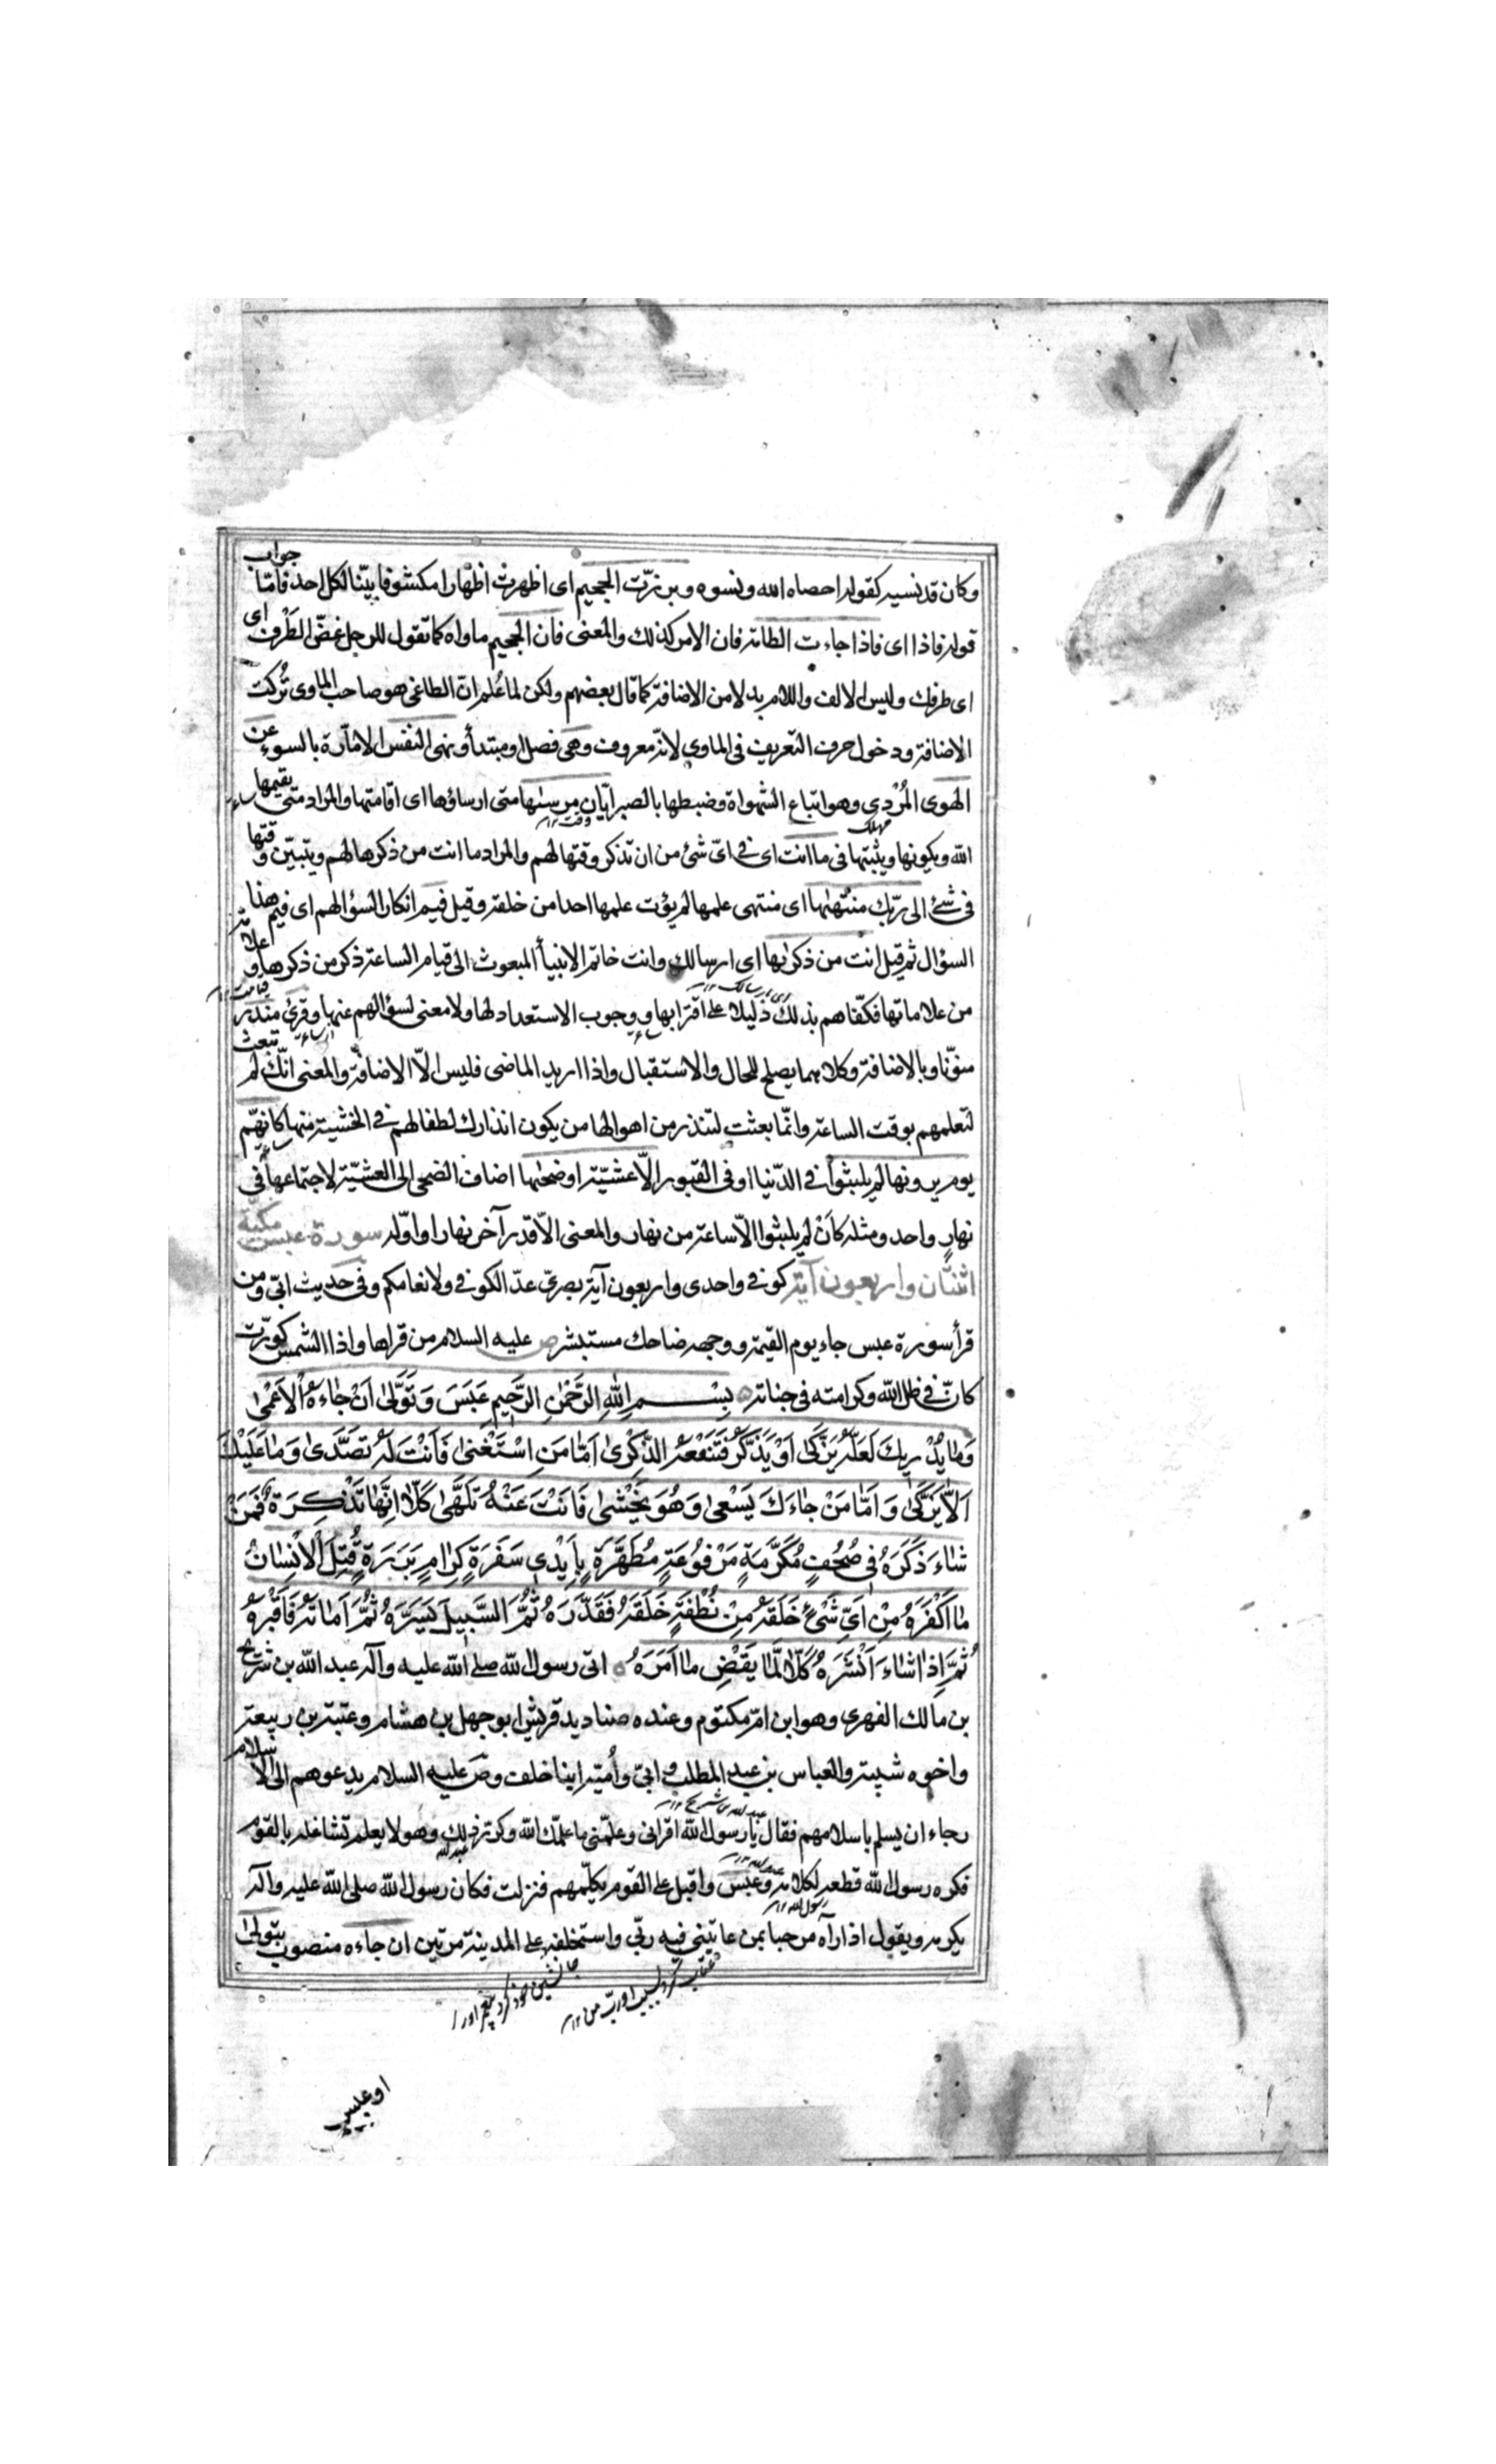 وكان قد نسيه كقوله احصاه الله ونسوه وبرزت الجحيم اى اظهرت اظهارا مكشوفا بيّنا لكل احد فامّا جواب
قوله فاذا اى فاذا جاءت الطامه فان الامر كذلك والمعنى فان الجحيم ماواه كما تقول للرجل غضّ الطّرف اى
اى طرفك وليس الالف واللام بدلا من الاضافة كما قال بعضهم ولكن لما عُلم انّ الطاغى هو صاحب الماوى تُركت
الاضافة ودخول حرف التعريف فى الماوى لانّه معروف وهى فصل او مبتدأ ونهى النفس الامّارة بالسوء عن
الهوى المُرْدِى وهو اتباع الشهواة وضبطها بالصبر ايّان مرسٰىها متى ارساؤها اى اقامتها والمراد متى يقيمها
مهلك وقت ١٢
الله ويكونها ويثبتها فى ما انت اى فى اىّ شئ من ان تذكر وقتها لهم والمراد ما انت من ذكرها لهم ويتبيّن وقتها
فى شئ الى ربّك منتهٰىها اى منتهى علمها لم يؤت علمها احدا من خلقه وقيل فيم انكار لسؤالهم اى فيم هذا
السؤال ثم قيل انت من ذكرٰىها اى ارسالك وانت خاتم الانبيأ المبعوث الى قيام الساعة ذكر من ذكرها وعلامة
من علاماتها فكفّاهم بذلك دليلا على اقترابها ووجوب الاستعداد لها ولا معنى لسؤالهم عنها وقرئ منذر
منوّنا وبالاضافة وكلاهما يصلح للحال والاستقبال واذا اريد الماضى فليس الّا الاضافة والمعنى انّك لم تبعث
لتعلمهم بوقت الساعة وانّما بعثت لتنذر من اهوالها من يكون انذارك لطفا لهم فى الخشية منها كانهّم
يوم يرونها لم يلبثوا فى الدّنيا او فى القبور الّا عشيّة او ضحٰىها اضاف الضحى الى العشيّة لاجتماعها فى
نهارٍ واحد ومثله كَانْ لم يلبثوا الّا ساعة من نهار والمعنى الّا قدر آخر نهار او اوّله سورة عبس مكيّة
اثنتان واربعون آية كوفى واحدى واربعون آية بصرىّ عدّ الكوفى ولانعامكم وفى حديث ابىّ ومن
قرأ سورة عبس جاء يوم القيمة ووجهه ضاحك مستبشر ص عليه السلام من قراها واذا الشمس كوّرت
كان فى ظل الله وكرامته فى جناته بِسْمِ اللهِ الرَّحْمٰنِ الرَّحِيمِ عَبَسَ وَتَوَلّٰى اَنْ جٰاءَهُ الْاَعْمٰى
وَمٰا يُدْرِيكَ لَعَلَّهُ يَزَّكّٰى اَوْ يَذَّكَّرُ فَتَنْفَعَهُ الذِّكْرىٰ اَمّٰا مَنِ اسْتَغْنىٰ فَاَنْتَ لَهُ تَصَدّىٰ وَمٰا عَلَيْكَ
اَلّٰا يَزَّكّٰى وَاَمّٰا مَنْ جٰاءَكَ يَسْعىٰ وَهُوَ يَخْشىٰ فَاَنْتَ عَنْهُ تَلَهّٰى كَلّٰا اِنَّهٰا تَذْكِرَةٌ فَمَنْ
شٰاءَ ذَكَرَهُ فِى صُحُفٍ مُكَرَّمَةٍ مَرْفُوعَةٍ مُطَهَّرَةٍ بِاَيْدِى سَفَرَةٍ كِرٰامٍ بَرَرَةٍ قُتِلَ الْاِنْسٰانُ
مٰا اَكْفَرَهُ مِنْ اَىِّ شَىْءٍ خَلَقَهُ مِنْ نُطْفَةٍ خَلَقَهُ فَقَدَّرَهُ ثُمَّ السَّبِيلَ يَسَّرَهُ ثُمَّ اَمٰاتَهُ فَاَقْبَرَهُ
ثُمَّ اِذٰا شٰاءَ اَنْشَرَهُ كَلّٰا لَمّٰا يَقْضِ مٰا اَمَرَهُ اتى رسول الله صلى الله عليه وآله عبد الله بن شريح
بن مالك الفهرى وهو ابن امّ مكتوم وعنده صناديد قريش ابوجهل بن هشام وعتبة بن ربيعة
واخوه شيبة والعباس بن عبد المطلب وابىّ واُميّة ابنا خلف وص عليه السلام يدعوهم الى الاسلام
عبد الله بن شريح ١٢
رجاء ان يسلم باسلامهم فقال يا رسول الله اقرانى وعلّمنى ما علّمك الله وكرّر ذلك وهو لا يعلم تشاغله بالقوم
عبد الله
فكره رسول الله قطعه لكلامه وعبس واقبل على القوم يكلّمهم فنزلت فكان رسول الله صلى الله عليه وآله
رسول الله ١٢
يكرمه ويقول اذا رآه مرحبا بمن عاتبنى فيه ربّى واستخلفه على المدينة مرتين ان جاءه منصوب بتولّى
عتاب كرد بسبب او ربّ من ١٢
جانشين خود كرد پيغمبر اورا
او عبس